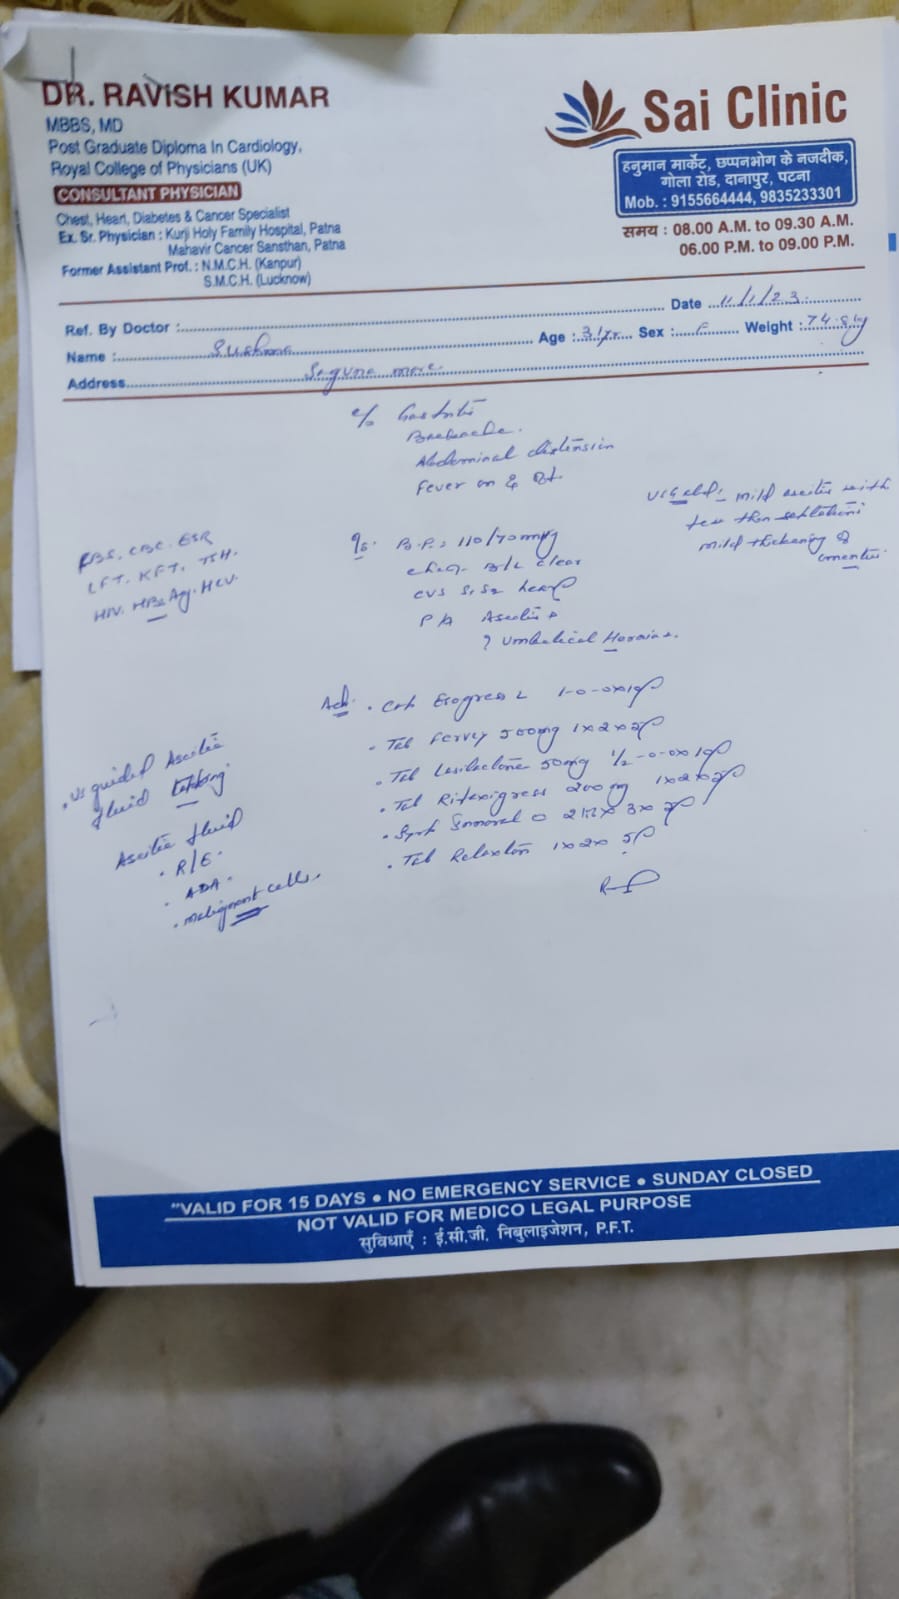 DR. RAVISH KUMAR
MBBS, MD
Post Graduate Diploma In Cardiology,
Royal College of Physicians (UK)
CONSULTANT PHYSICIAN
Chest, Heart, Diabetes & Cancer Specialist
Ex. Sr. Physician : Kurji Holy Family Hospital, Patna
Mahavir Cancer Sansthan, Patna
Former Assistant Prof. : N.M.C.H. (Kanpur)
S.M.C.H. (Lucknow)
Sai Clinic
हनुमान मार्केट, छप्पनभोग के नजदीक,
गोला रोड, दानापुर, पटना
Mob. : 9155664444, 9835233301
समय : 08.00 A.M. to 09.30 A.M.
06.00 P.M. to 09.00 P.M.
Ref. By Doctor : Date 11/1/23
Name : Sushma Age : 31yr Sex : F Weight : 74.8kg
Address Saguna more
c/o Gastritis
Backache.
Abdominal distension
Fever on &
USG abd: mild ascites with
mild thickening of
RBS. CBC. ESR
LFT. KFT. TSH.
HIV. HBsAg. HCV.
B.P.: 110/70mmHg
Chest B/L clear
CVS S1S2 heard
P/A Ascites +
? Umbilical Hernia +
Adv. Esogress L 1-0-0x
Tab 500mg 1x2x
Tab Lasilactone 50mg 1/2-0-0x
Tab Rifaxigress 200mg 1x2x
Syp
Tab 1x2x
US guided Ascitic
fluid
Ascitic fluid
R/E.
ADA.
malignant cells.
"VALID FOR 15 DAYS ● NO EMERGENCY SERVICE ● SUNDAY CLOSED
NOT VALID FOR MEDICO LEGAL PURPOSE
सुविधाएँ : ई.सी.जी. निबुलाइजेशन, P.F.T.